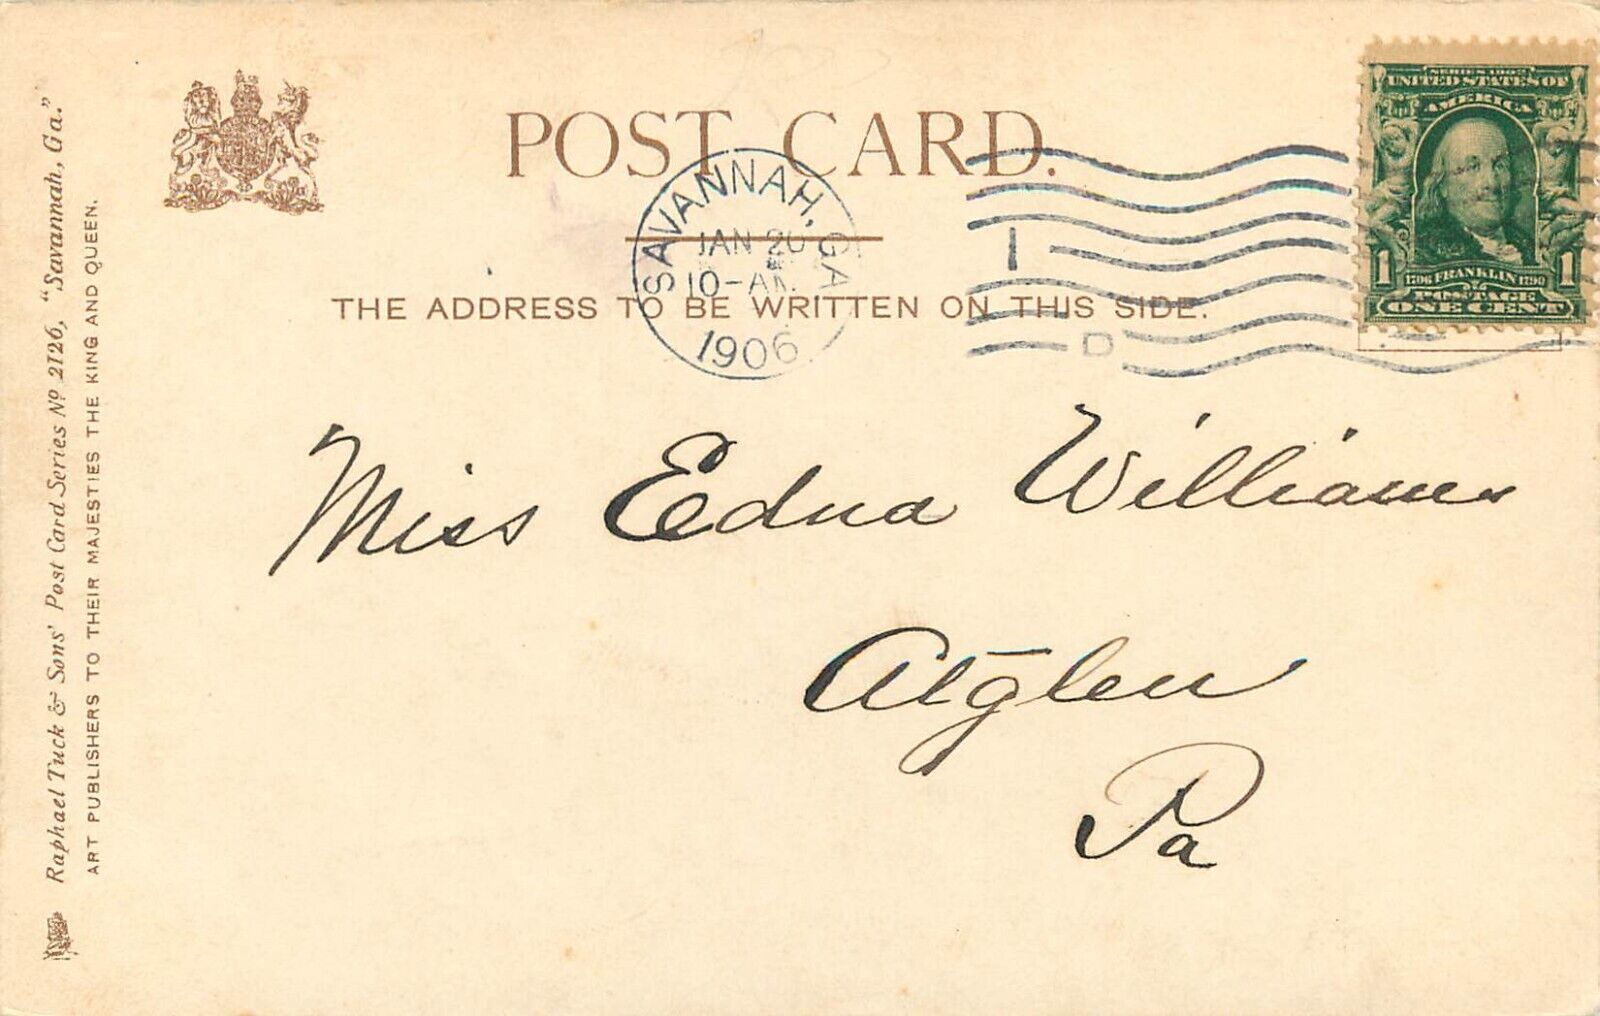 POST CARD.
THE ADDRESS TO BE WRITTEN ON THIS SIDE.
SAVANNAH, GA
JAN 20
10-AM
1906
1
D
SERIES 1902
UNITED STATES OF
AMERICA
1 1706 FRANKLIN 1790 1
POSTAGE
ONE CENT
Miss Edna Williams
Atglen
Pa
Raphael Tuck & Sons' Post Card Series No 2126, "Savannah, Ga."
ART PUBLISHERS TO THEIR MAJESTIES THE KING AND QUEEN.